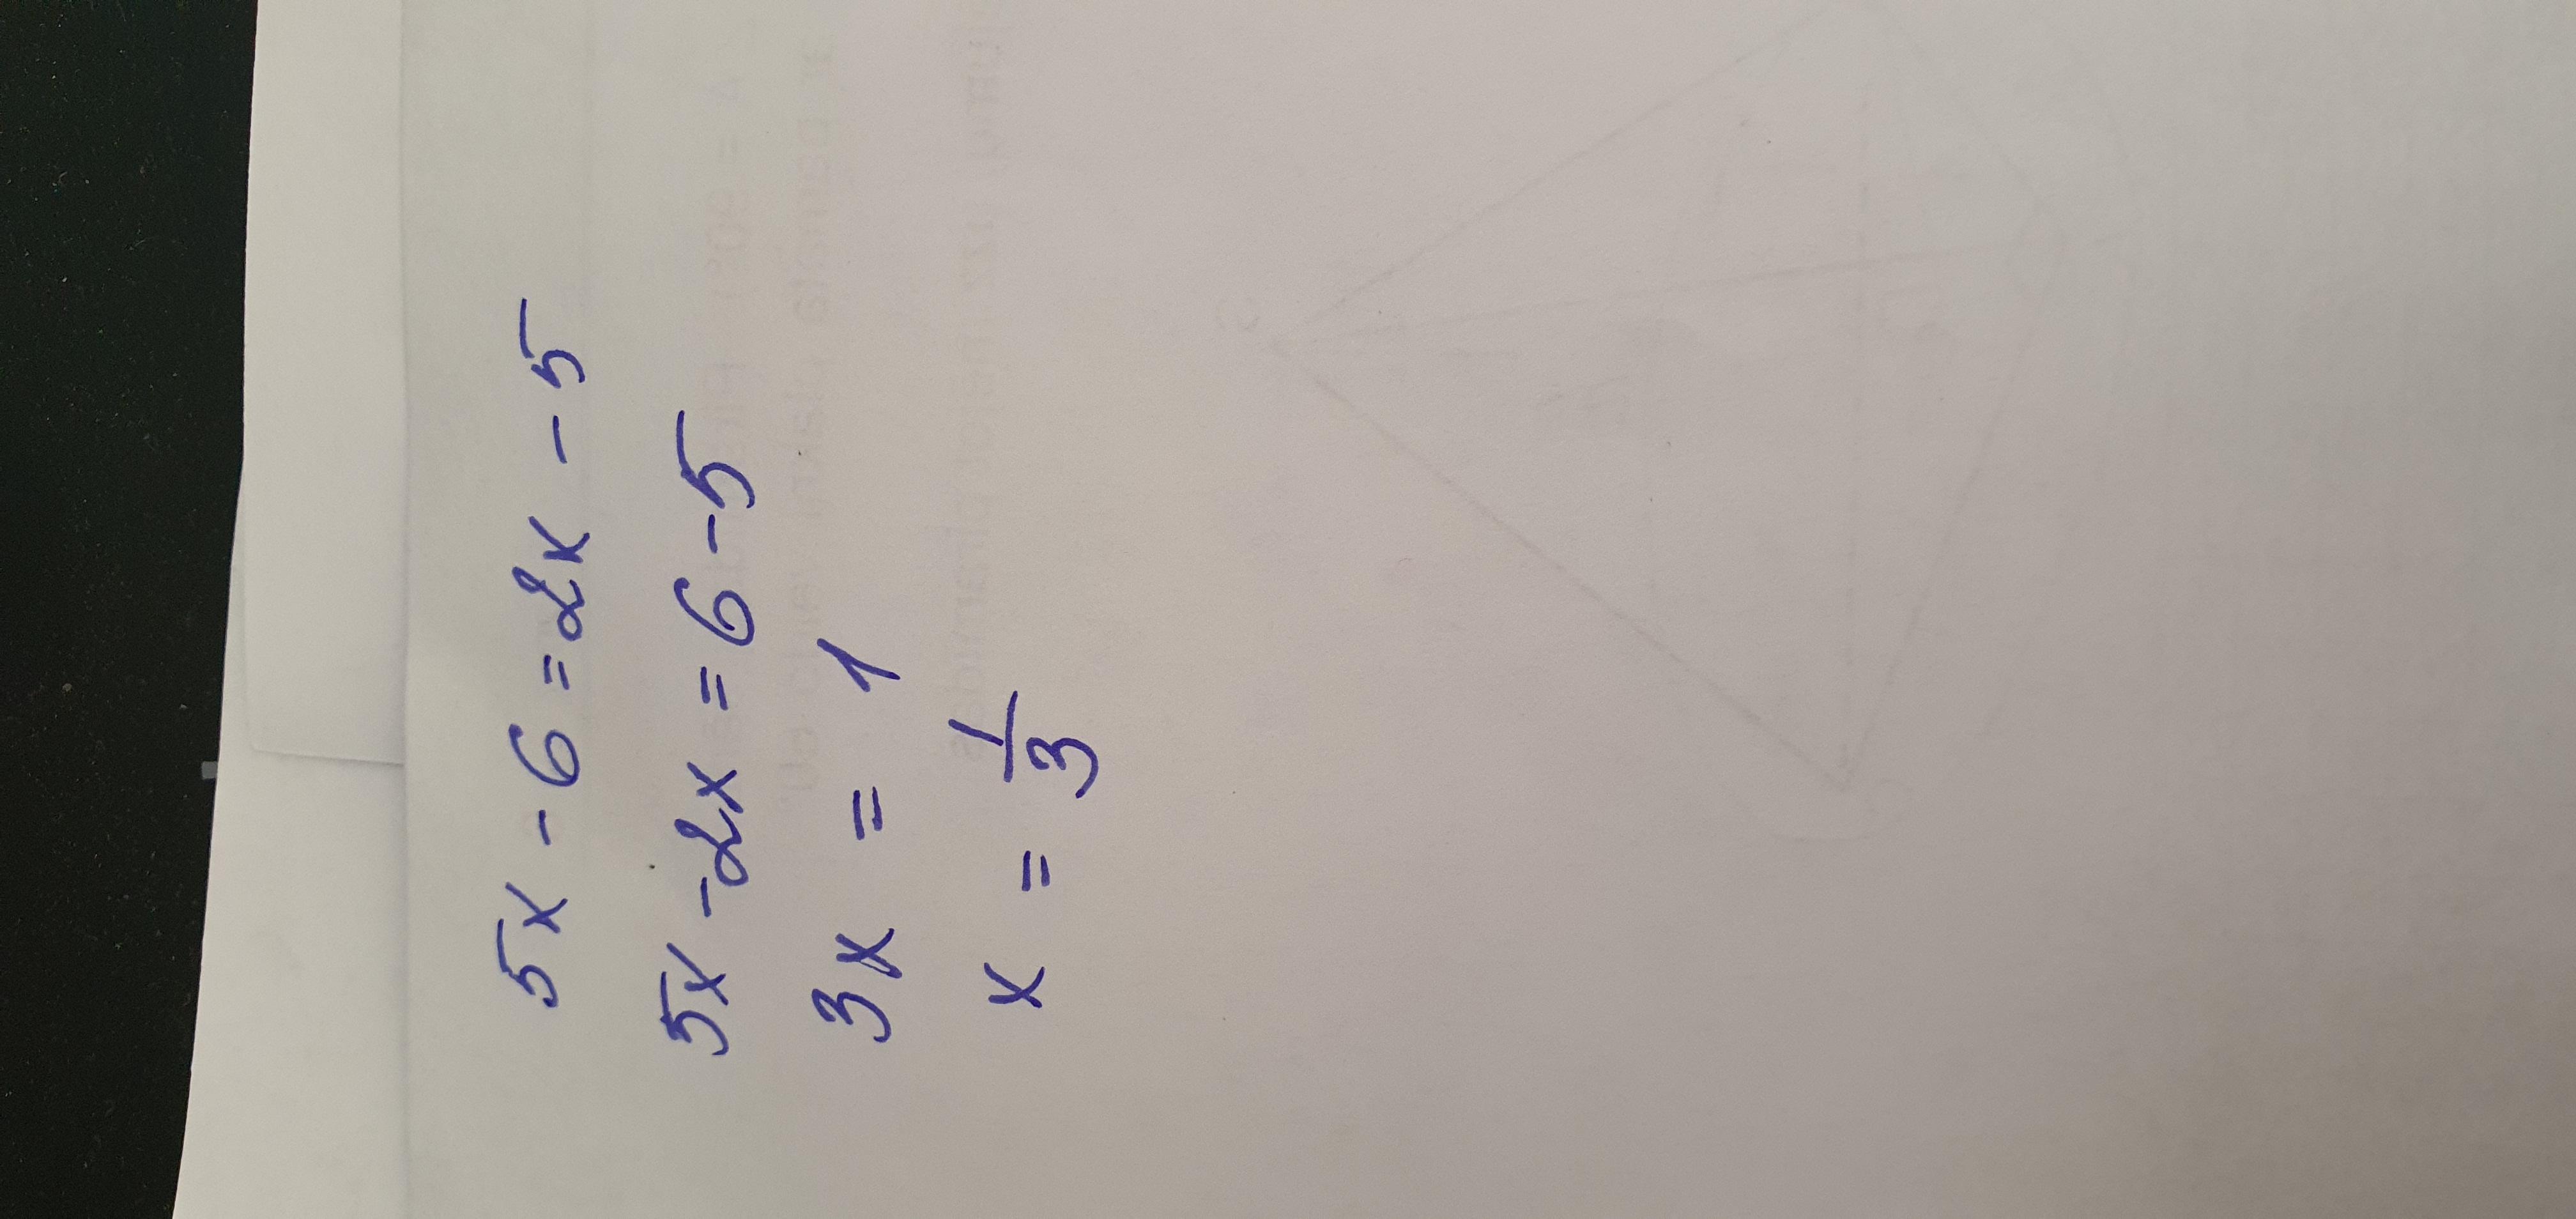 5x - 6 = 2x - 5
5x - 2x = 6 - 5
3x = 1
x = 1/3